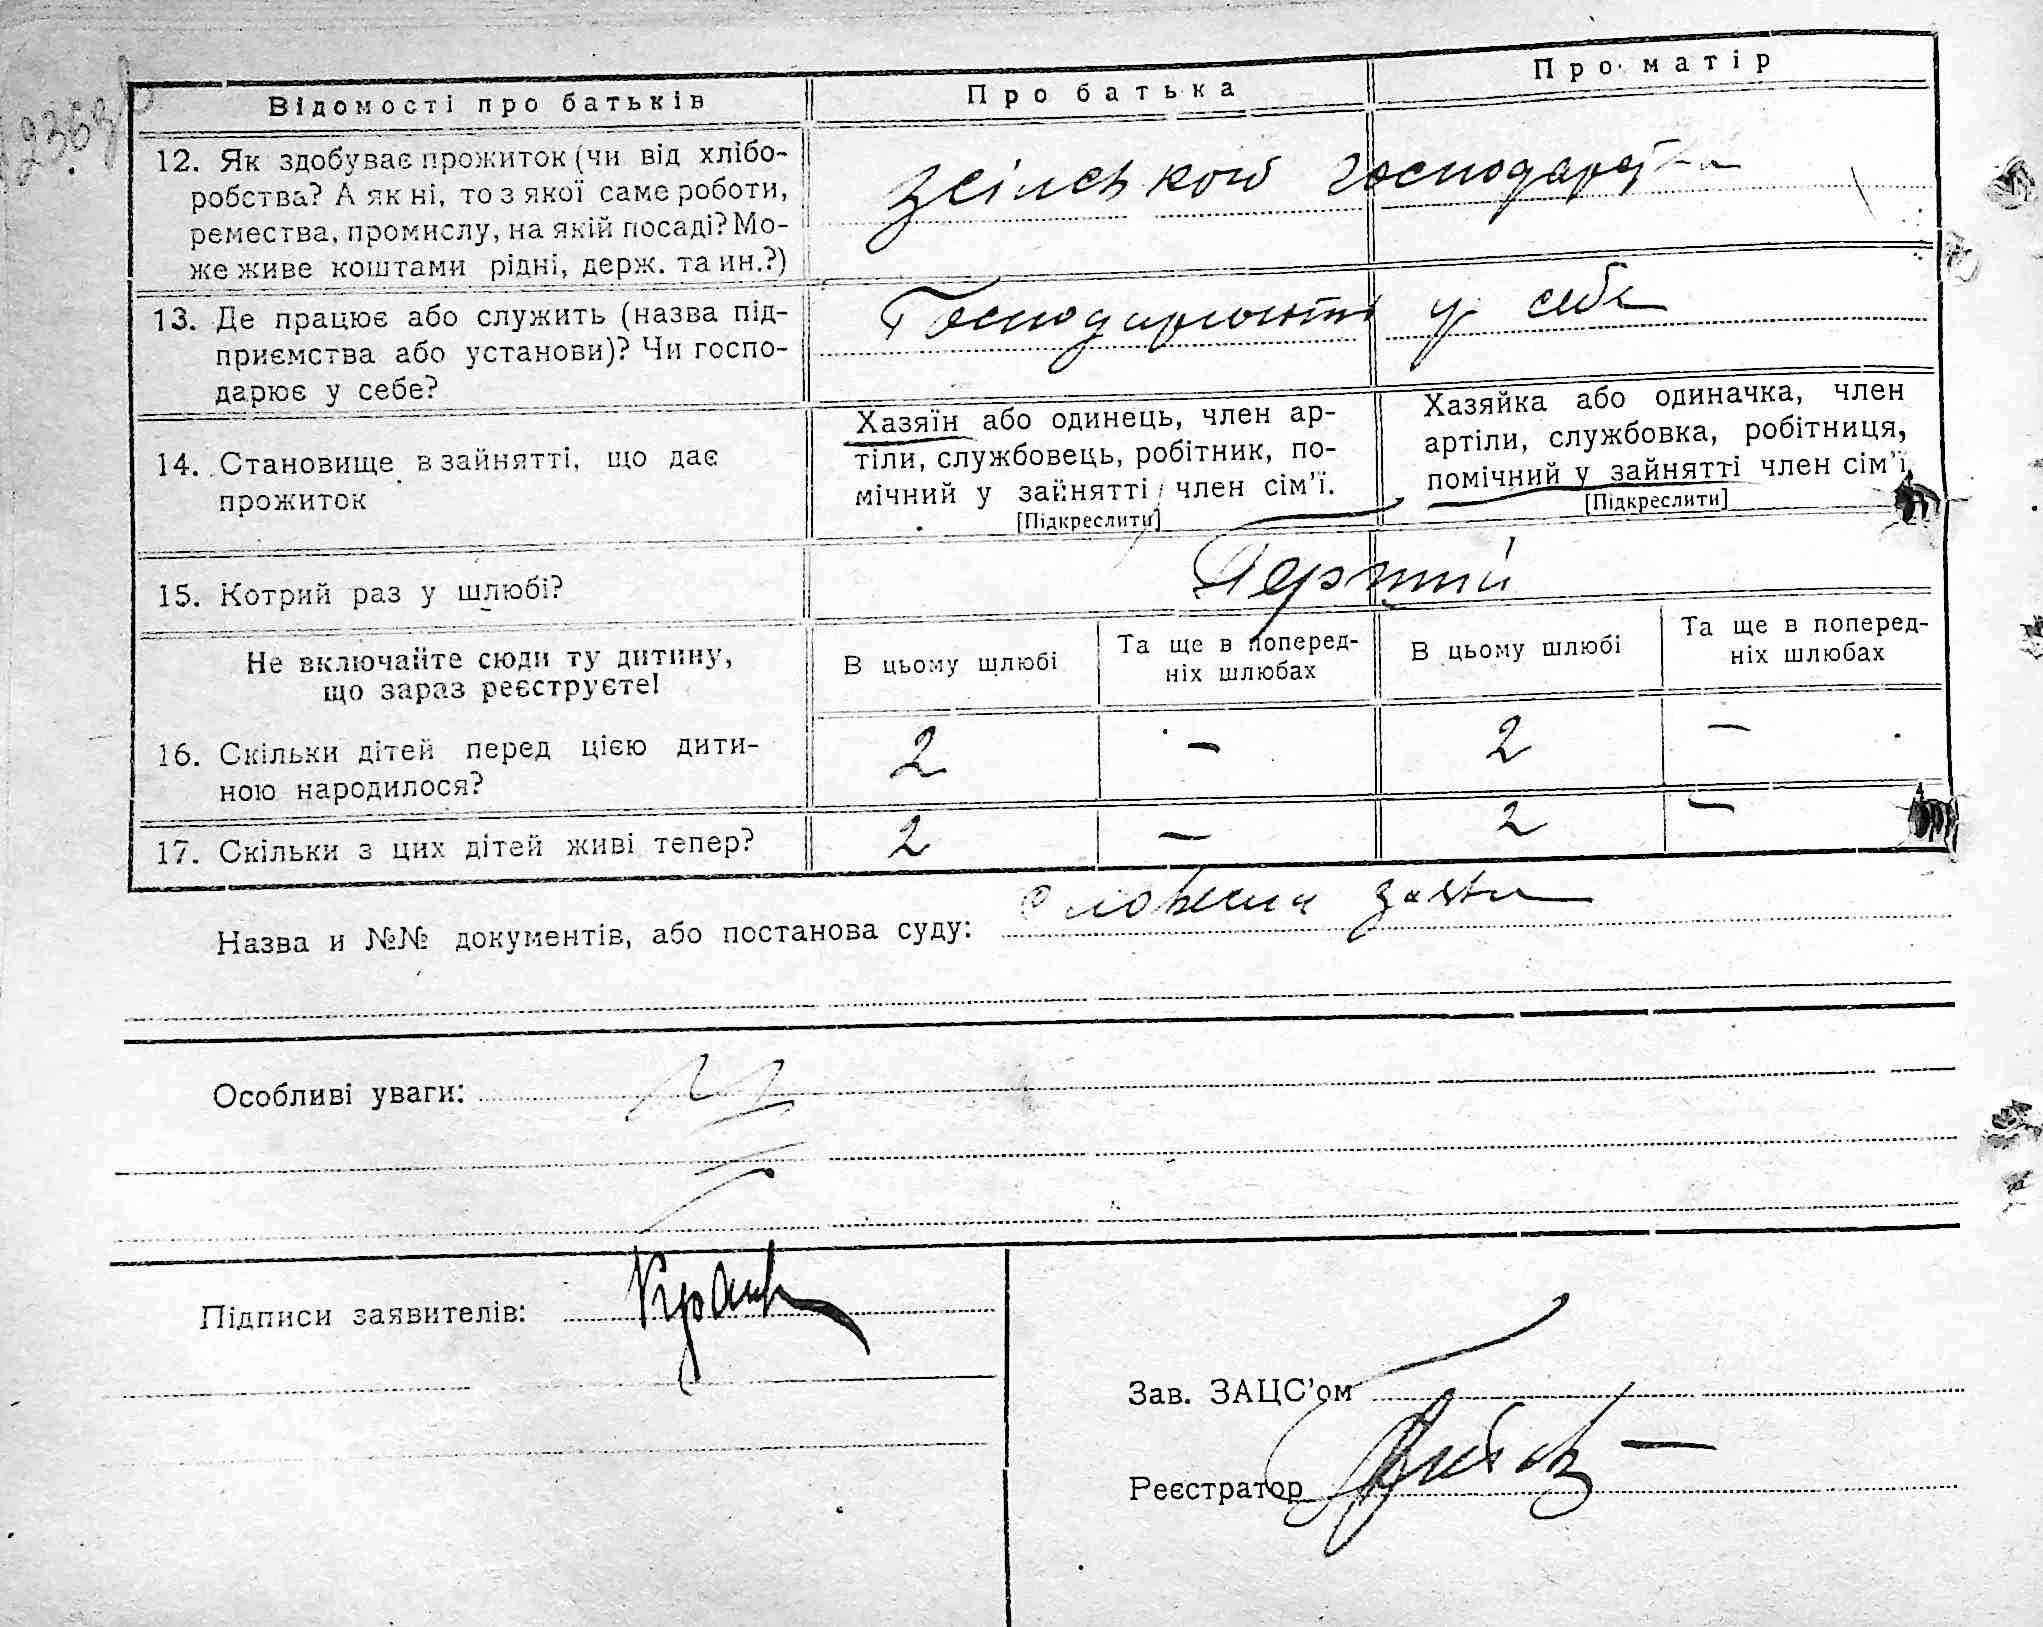 Відомості про батьків Про батька Про матір
12. Як здобуває прожиток (чи від хлібо-
робства? А як ні, то з якої саме роботи,
ремества, промислу, на якій посаді? Мо-
же живе коштами рідні, держ. та ин.?)
з сільського господарства
13. Де працює або служить (назва під-
приємства або установи)? Чи госпо-
дарює у себе?
у себе
14. Становище в зайнятті, що дає
прожиток
Хазяїн або одинець, член ар-
тіли, службовець, робітник, по-
мічний у зайнятті член сім'ї.
[Підкреслити]
Хазяйка або одиначка, член
артіли, службовка, робітниця,
помічний у зайнятті член сім'ї
[Підкреслити]
15. Котрий раз у шлюбі?
Перший
Не включайте сюди ту дитину,
що зараз реєструєте!
В цьому шлюбі
Та ще в поперед-
ніх шлюбах
В цьому шлюбі
Та ще в поперед-
ніх шлюбах
16. Скільки дітей перед цією дити-
ною народилося?
2 - 2 -
17. Скільки з цих дітей живі тепер? 2 - 2 -
Назва и №№ документів, або постанова суду:
Особливі уваги:
Підписи заявителів:
Зав. ЗАЦС'ом
Реєстратор